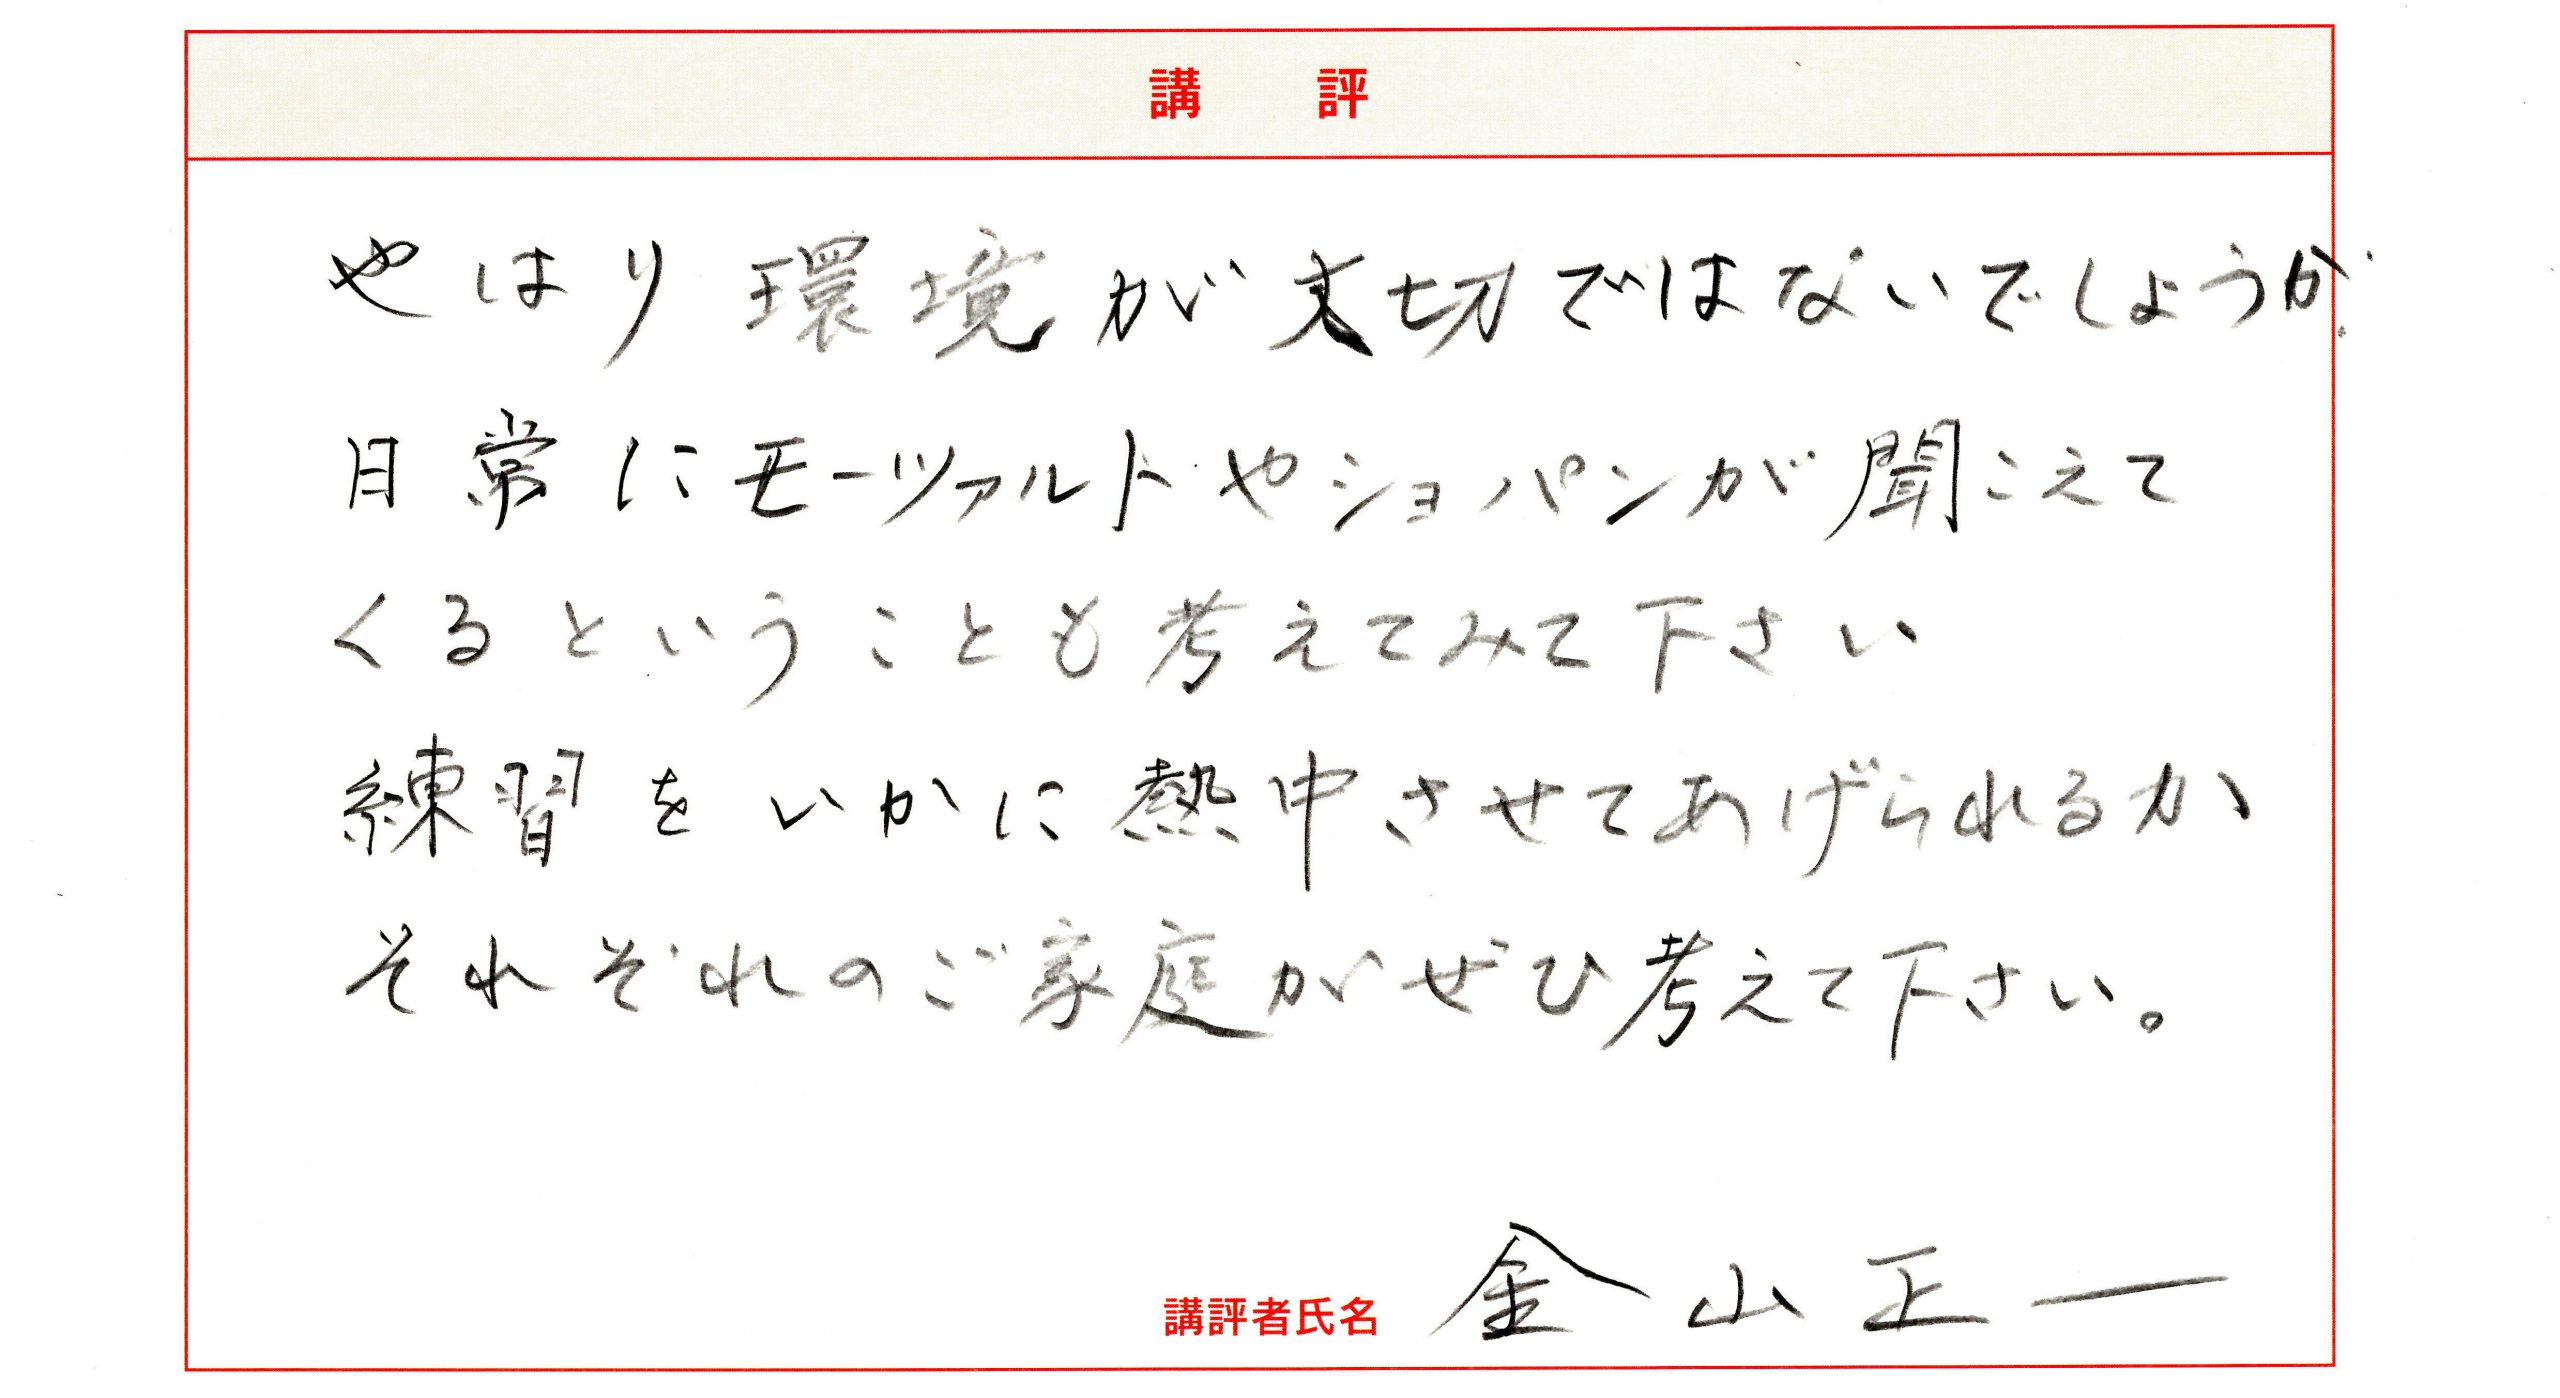 講評
やはり環境が大切ではないでしょうか.
日常にモーツァルトやショパンが聞こえて
くるということも考えてみて下さい
練習をいかに熱中させてあげられるか
それぞれのご家庭がぜひ考えて下さい。
講評者氏名 金山正一